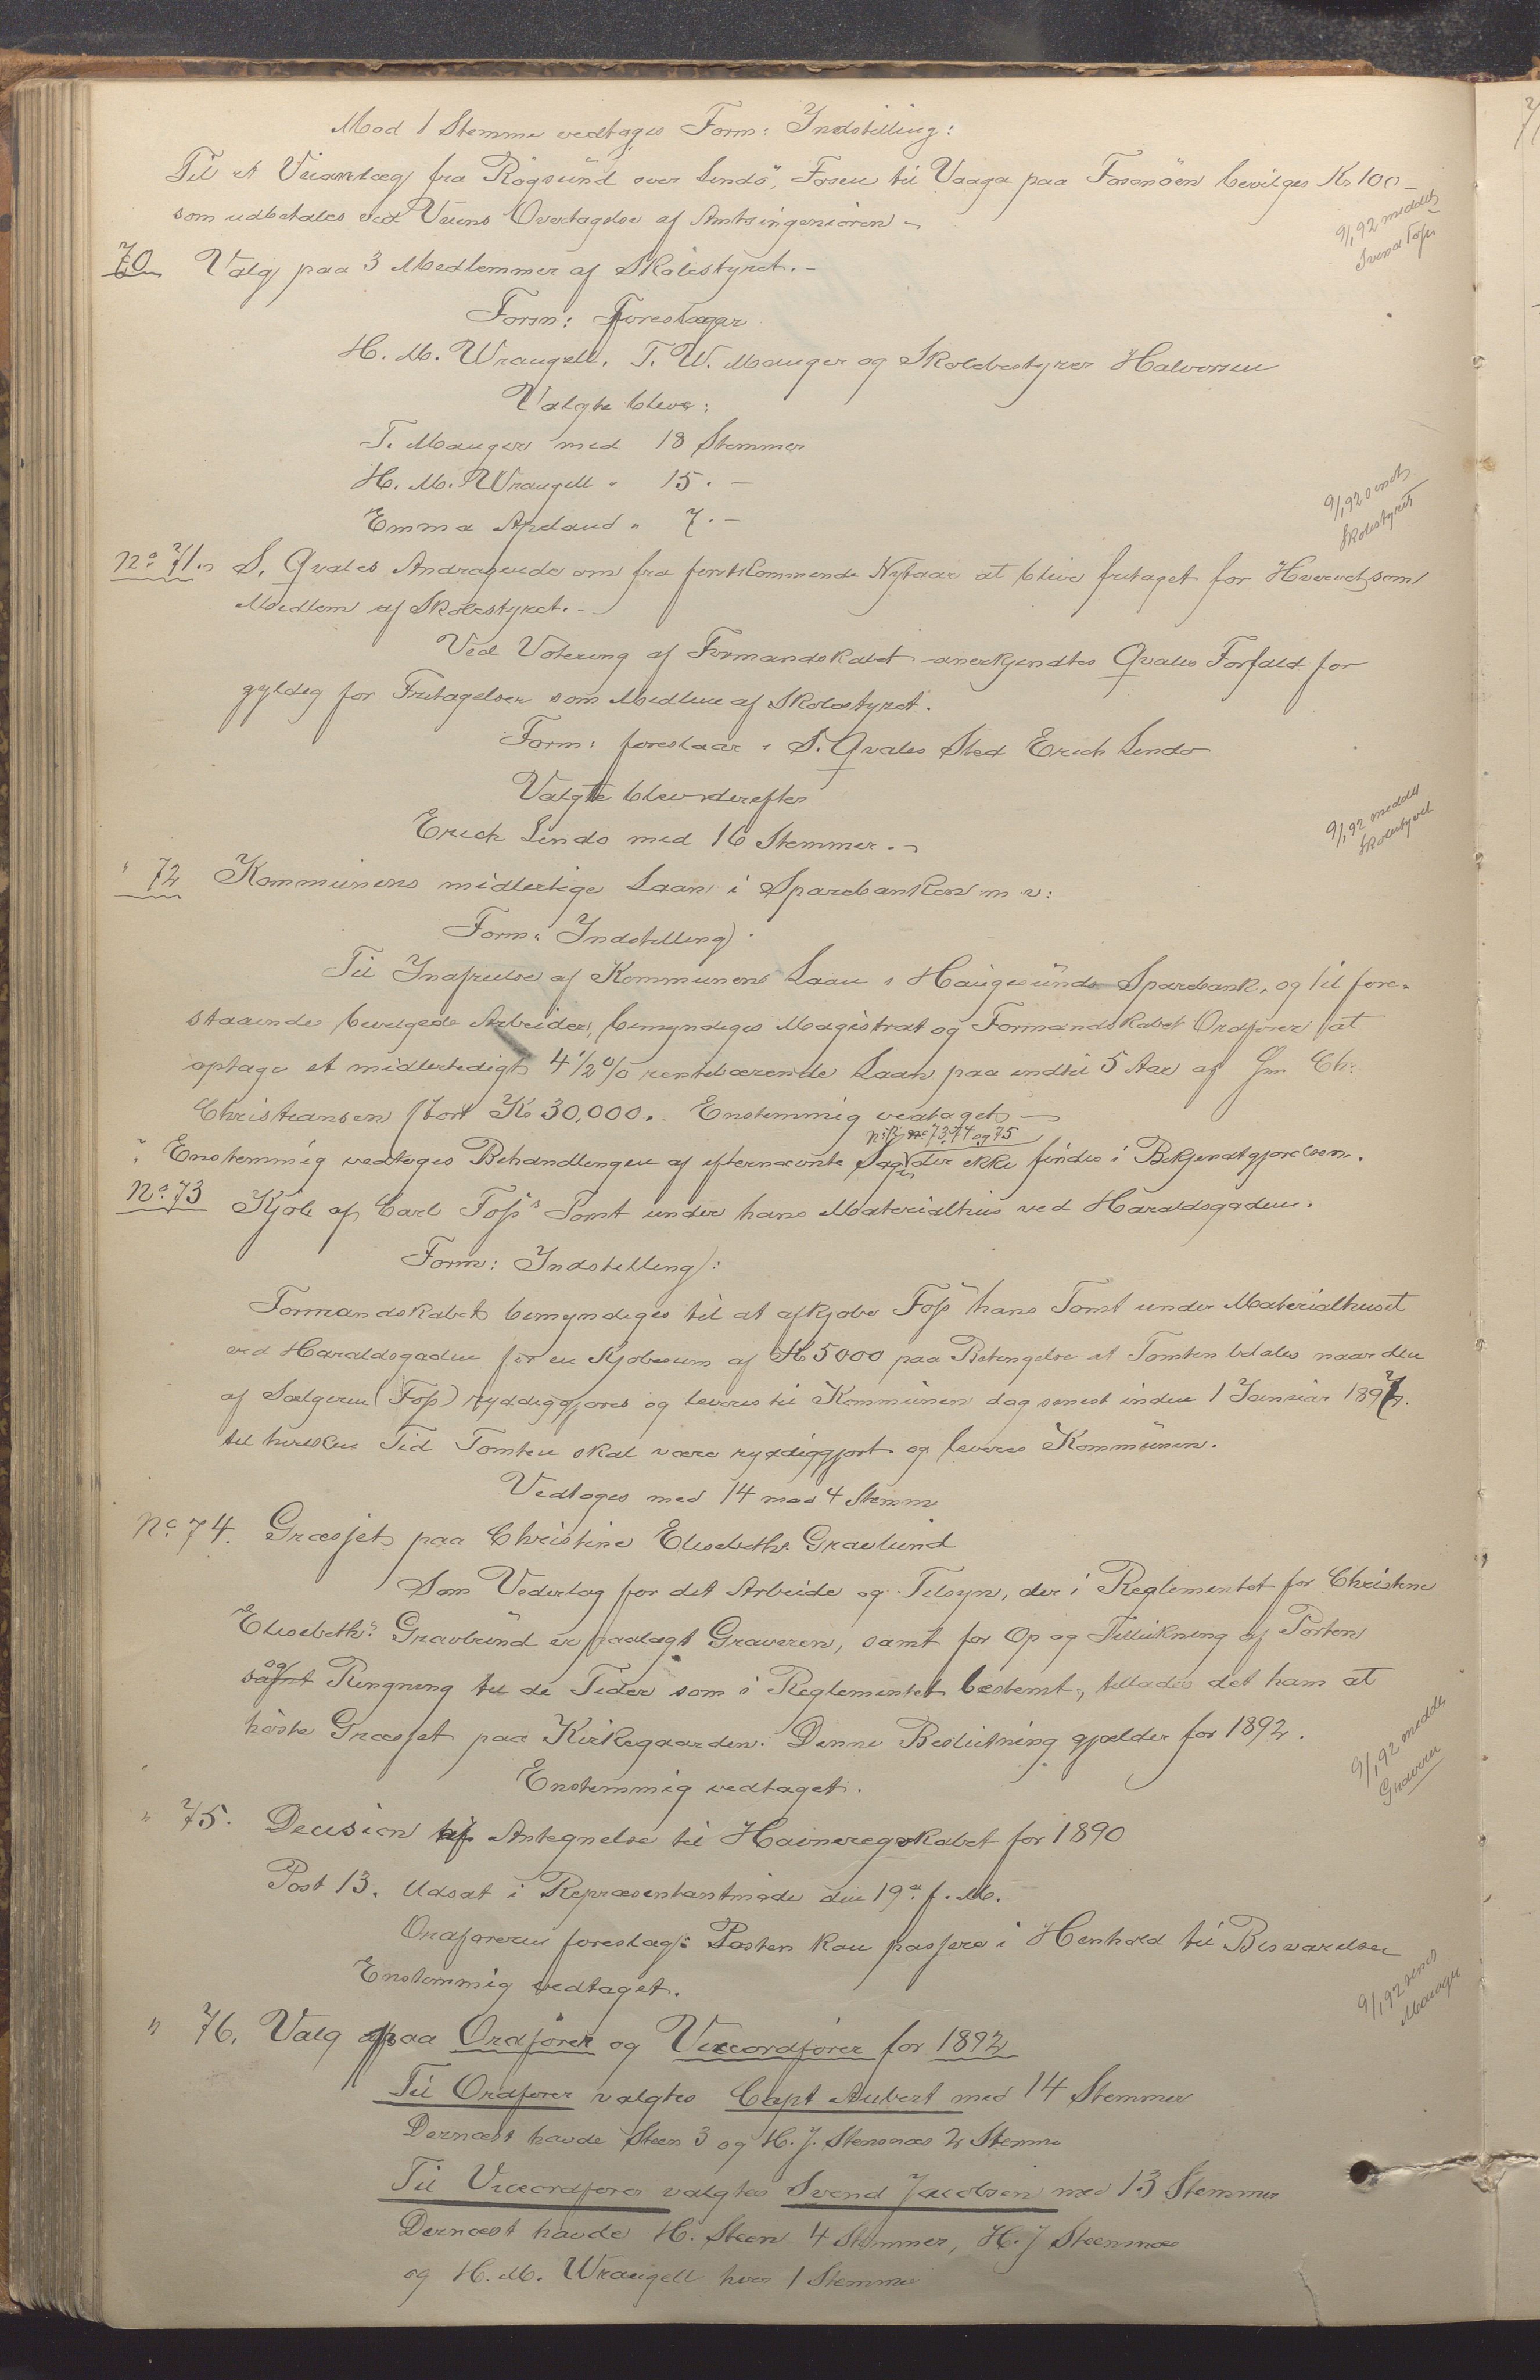 Mod 1 Stemme vedtoges Form: Indstilling:
Til et Veianlæg fra Røgsund over Lindö, Fosen til Vaaga paa Fosenöen bevilges Kr 100 –
som udbetales ved Veiens Overtagelse af Amtsingeniören –
9/1 92 meddelt
Svend Foss
70 Valg paa 3 Medlemmer af Skolestyret. –
Form: foreslaaar
H. M. Wrangell, T. W. Mauger og Skolebestyrer Halvorsen
Valgte bleve:
T. Mauger med 18 Stemmer
H. M. Wrangell " 15. –
Emma Apeland " 7. –
9/1 92 sendt
Skolestyret
No 71. S. Qvales Andragende om fra förstkommende Nytaar at blive fritaget for Hvervet som
Medlem af Skolestyret. –
Ved Votering af Formandskabet anerkjendtes Qvales Forfald for
gyldig for Fritagelsen som Medlem af Skolestyret.
Form: foreslaar i S. Qvales Sted Erich Lindo
Valgte blev derefter
Erich Lindo med 16 Stemmer. –
9/1 92 meddelt
Skolestyret
" 72 Kommunens midlertige Laan i Sparebanken m v:
Form: Indstilling.
Til Indfrielse af Kommunens Laan i Haugesunds Sparebank, og til fore-
staaende bevilgede Arbeider, bemyndiges Magistrat og Formandskabet Ordförer at
optage et midlertedigt 4 1/2 % rentebærende Laan paa indtil 5 Aar af Hr. Chr.
Christiansen stort Kr 30,000. Enstemmig vedtaget –
No 73, 74 og 75
" Enstemmig vedtoges Behandlingen af efternævnte Sager der ikke findes i Bekjendtgjorelsen.
No 73 Kjöb af Carl Foss's Tomt under hans Materialhus ved Haraldsgaden.
Form: Indstilling:
Formandskabet bemyndiges til at afkjøbe Foss hans Tomt under Materialhuset
ved Haraldsgaden for en Kjøbesum af Kr 5000 paa Betingelse at Tomten betales naar den
af Sælgeren (Foss) ryddiggjøres og leveres til Kommunen dog senest inden 1 Januar 1897.
til hvilken Tid Tomten skal være ryddiggjort og leveres Kommunen.
Vedtoges med 14 mod 4 Stemme
No 74. Græsset paa Christine Elisabeths Gravlund
Som Vederlag for det Arbeide og Tilsyn, der i Reglementet for Christine
Elisabeths Gravlund er paalagt Graveren, samt for Op og Tillukning af Porten
og Ringning til de Tider som i Reglementet bestemt, tillades det ham at
höste Græsset paa Kirkegaarden. Denne Beslutning gjælder for 1892.
Enstemmig vedtaget.
9/1 92 meddelt
Graveren
" 75. Decision af Antegnelse til Havneregnskabet for 1890
Post 13. Udsat i Repræsentantmøde den 19de f. M.
Ordførerens foreslag: Posten kan passere i Henhold til Besvarelsen
Enstemmig vedtaget.
9/1 92 sendt
Mauger
" 76. Valg paa Ordförer og Viceordförer for 1892
Til Ordfører valgtes Capt Aubert med 14 Stemmer
Dernæst havde Steen 3 og H. J. Stensnæs 2 Stemme
Til Viceordfører valgtes Svend Jacobsen med 13 Stemmer
Dernæst havde H. Steen 4 Stemmer, H. J Steensnæs
og H. M. Wrangell hver 1 Stemme